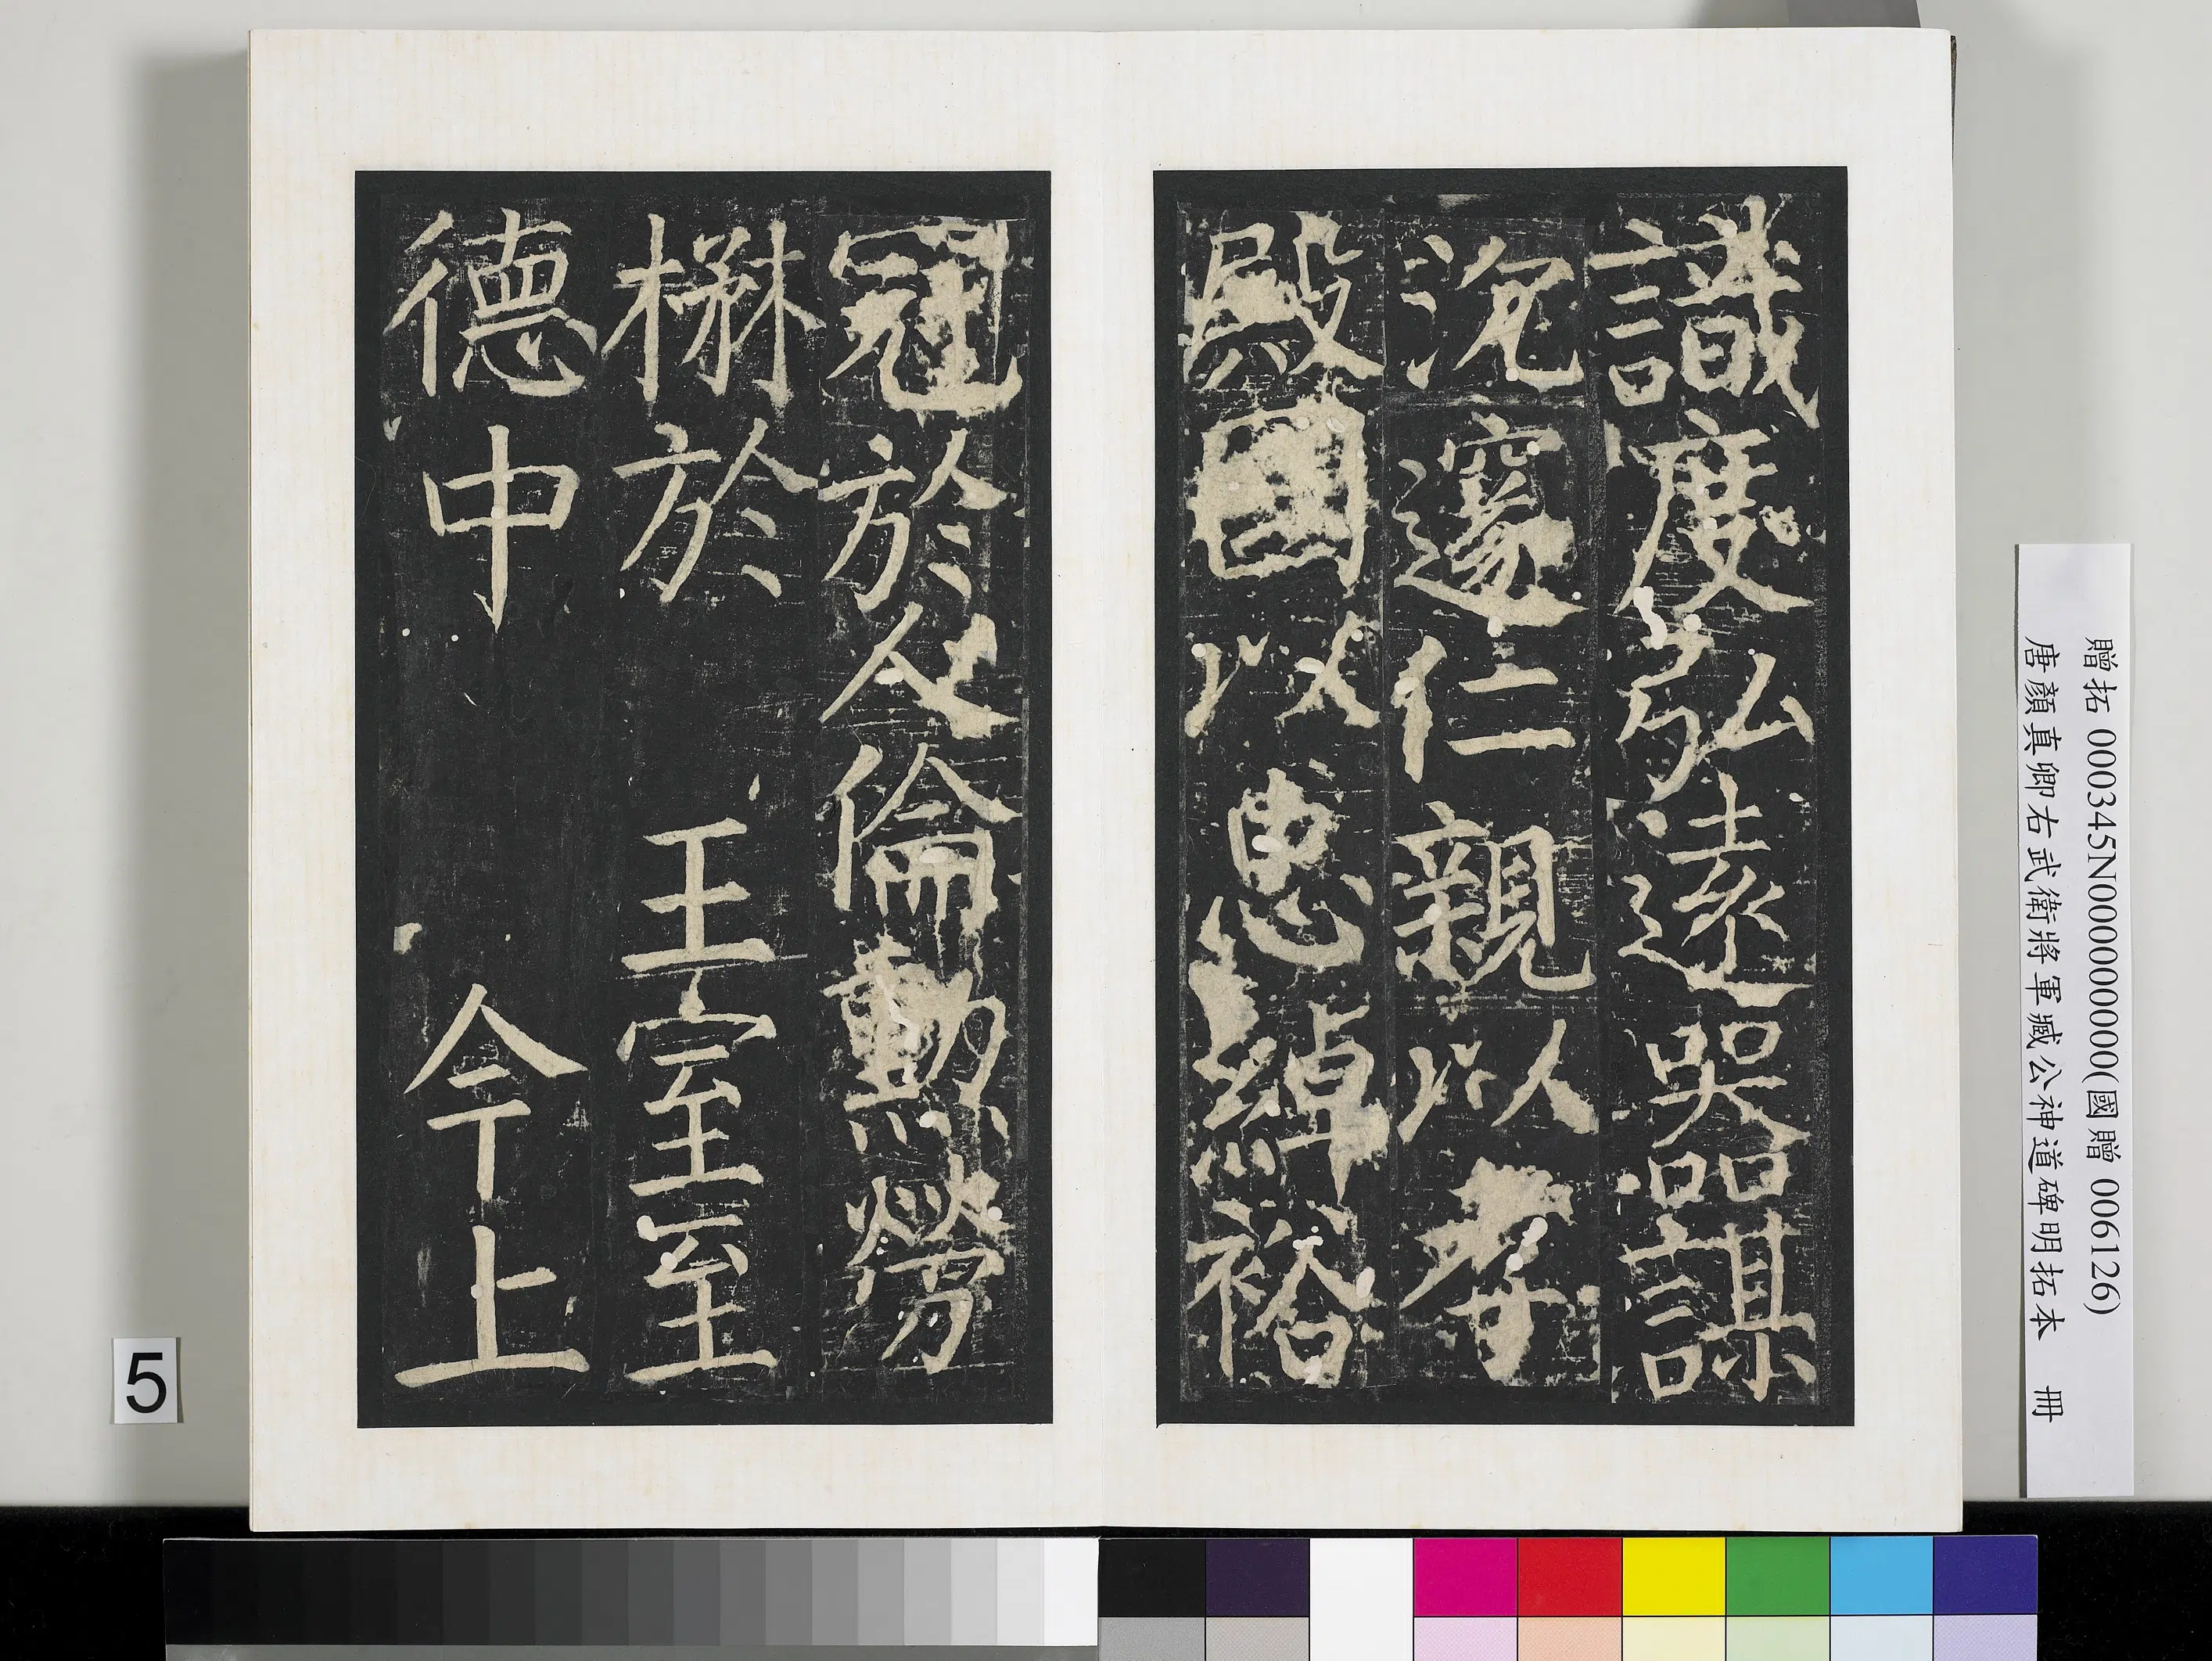 識度弘遠器謀
沉邃仁親以孝
殿國以忠綽裕
冠於人倫勳勞
楙於 王室至
德中 今上
贈拓 000345N000000000(國贈 006126)
唐顏真卿右武衛將軍臧公神道碑明拓本 冊
5